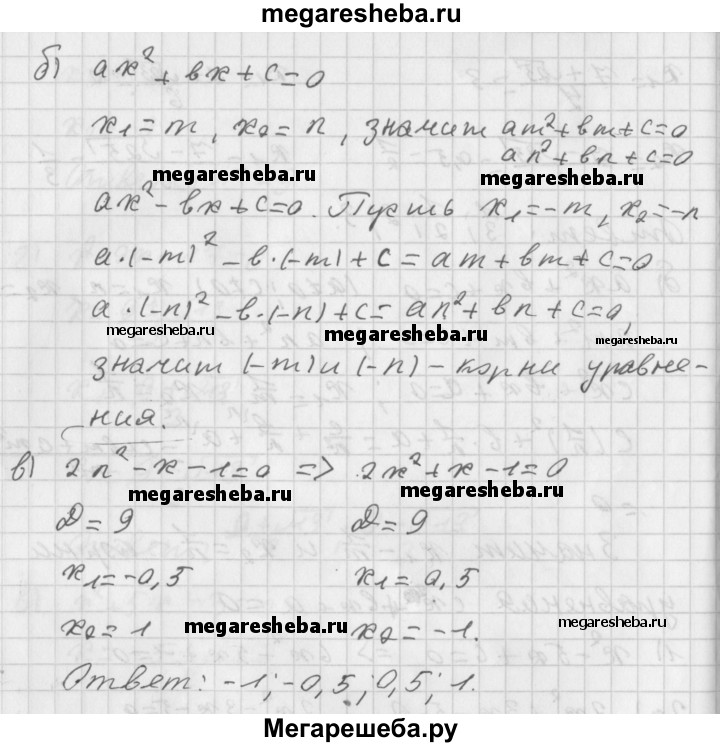 megaresheba.ru
б) ax² + вx + c = 0
x1 = m, x2 = n, значит am² + вm + c = 0
an² + вn + c = 0
megaresheba.ru megaresheba.ru
ax² - вx + c = 0. Пусть x1 = -m, x2 = -n
a·(-m)² - в·(-m) + c = am + вm + c = 0
a·(-n)² - в·(-n) + c = an² + вn + c = 0,
megaresheba.ru megaresheba.ru megaresheba.ru
значит (-m) и (-n) - корни уравне-
ния.
в) 2n² - x - 1 = 0 => 2x² + x - 1 = 0
megaresheba.ru megaresheba.ru
D = 9 D = 9
x1 = -0,5 x1 = 0,5
x2 = 1 megaresheba.ru x2 = -1. megaresheba.ru
Ответ: -1; -0,5; 0,5; 1.
Мегарешеба.ру